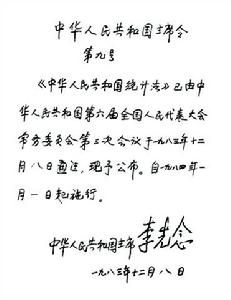 中华人民共和国主席令
第九号
《中华人民共和国统计法》已由中
华人民共和国第六届全国人民代表大会
常务委员会第三次会议于一九八三年十二
月八日通过，现予公布。自一九八四年一
月一日起施行。
中华人民共和国主席 李先念
一九八三年十二月八日